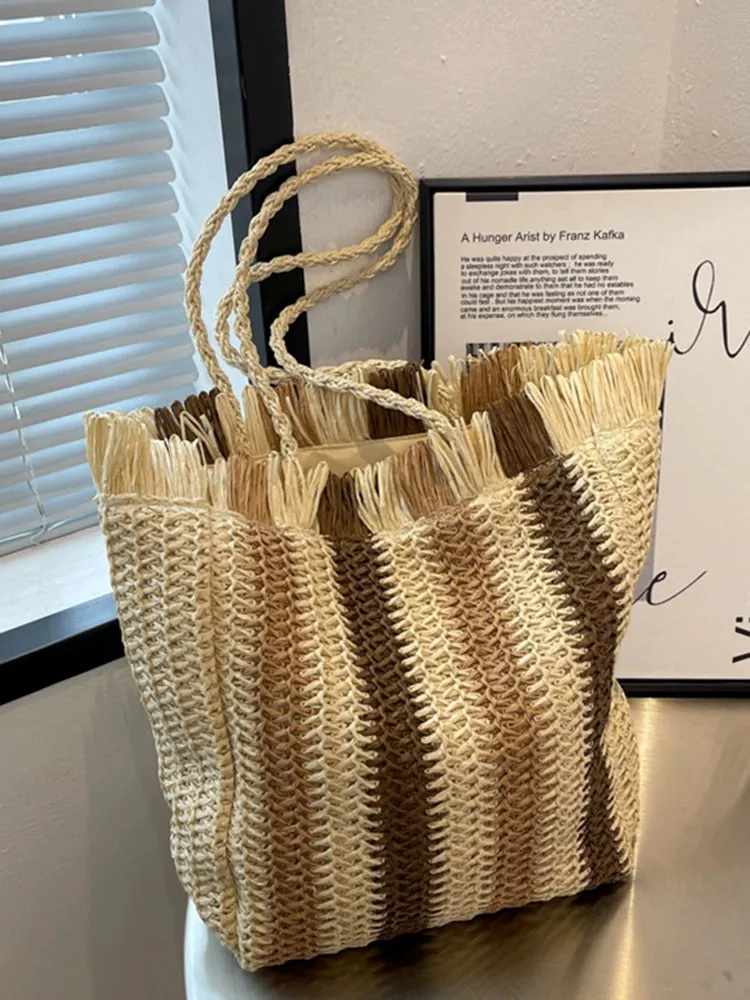 A Hunger Arist by Franz Kafka
He was quite happy at the prospect of spending
a sleepless night with such watchers ; he was ready
to exchange jokes with them, to tell them stories
out of his nomadic life ,anything ast all to keep them
awake and demonstrate to them that he had no eatables
in his cage and that he was fasting as not one of them
could fast . But his happiest moment was when the morning
came and an enormous breakfast was brought them,
at his expense, on which they flung themselves...
Vi